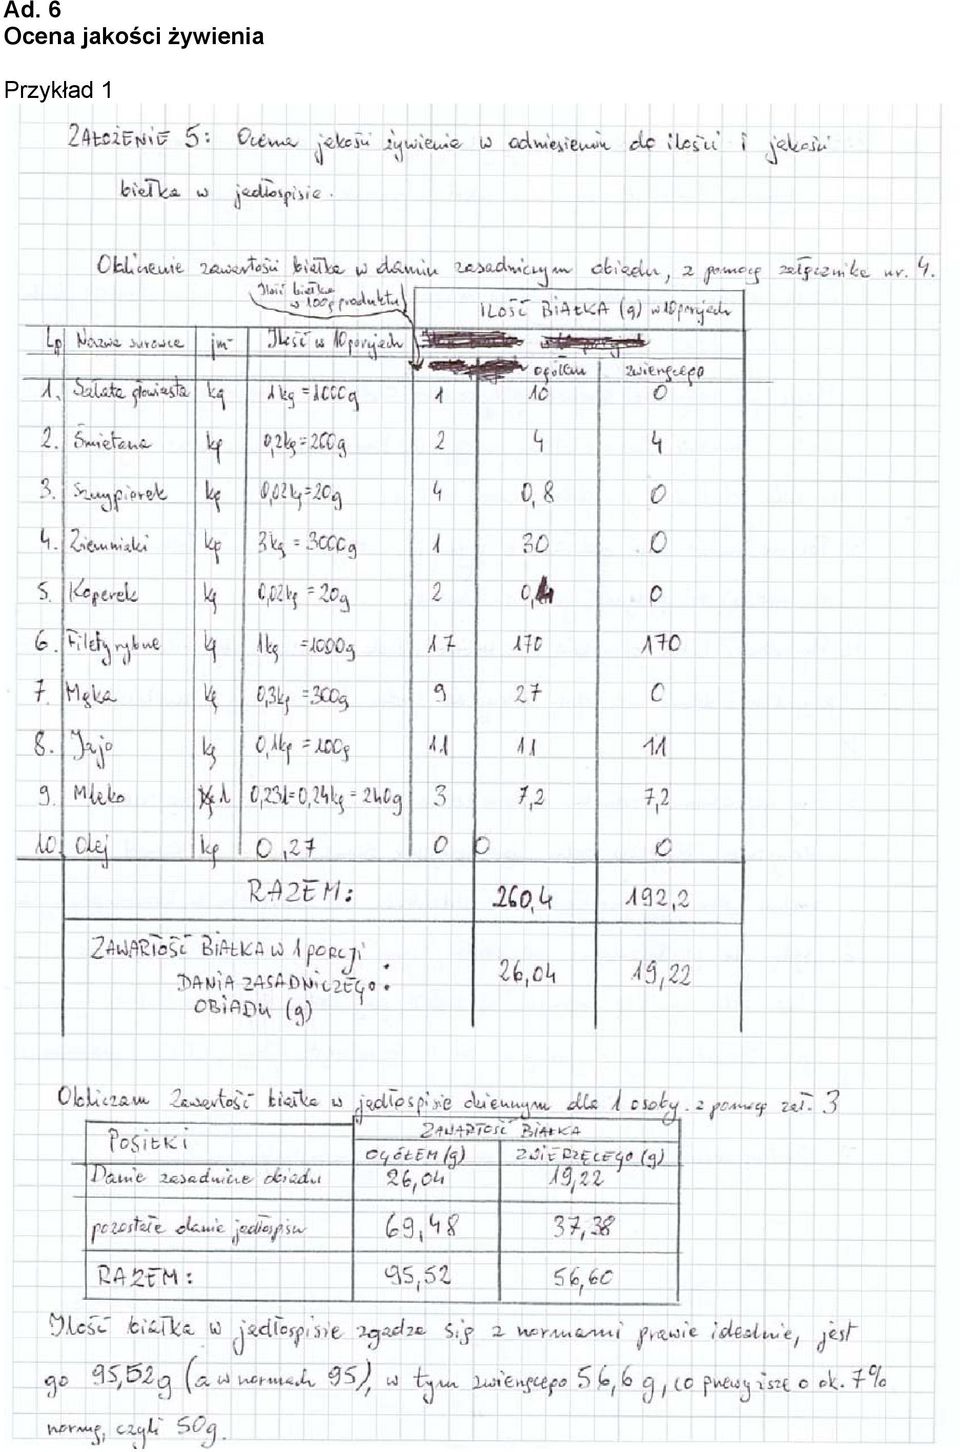 Ad. 6
Ocena jakości żywienia
Przykład 1
ZAŁOŻENIE 5: Ocena jakości żywienia w odniesieniu do ilości i jakości
białka w jadłospisie.
Obliczenie zawartości białka w daniu zasadniczym obiadu, z pomocą załącznika nr. 4.
Ilość białka w 100g produktu
ILOŚĆ BIAŁKA (g) w 10 porcjach
Lp Nazwa surowca jm Ilość w 10 porcjach
ogółem zwierzęcego
1. Sałata głowiasta kg 1kg = 1000g 1 10 0
2. Śmietana kg 0,2kg = 200g 2 4 4
3. Szczypiorek kg 0,02kg = 20g 4 0,8 0
4. Ziemniaki kg 3kg = 3000g 1 30 0
5. Koperek kg 0,02kg = 20g 2 0,4 0
6. Filety rybne kg 1kg = 1000g 17 170 170
7. Mąka kg 0,3kg = 300g 9 27 0
8. Jajo kg 0,1kg = 100g 11 11 11
9. Mleko l 0,23l = 0,24kg = 240g 3 7,2 7,2
10. Olej kg 0,27 0 0 0
RAZEM: 260,4 192,2
ZAWARTOŚĆ BIAŁKA W 1 PORCJI
DANIA ZASADNICZEGO: 26,04 19,22
OBIADU (g)
Obliczam zawartość białka w jadłospisie dziennym dla 1 osoby. z pomocą zał. 3
POSIŁKI ZAWARTOŚĆ BIAŁKA
OGÓŁEM (g) ZWIERZĘCEGO (g)
Danie zasadnicze obiadu 26,04 19,22
pozostałe dania jadłospisu 69,48 37,38
RAZEM: 95,52 56,60
Ilość białka w jadłospisie zgadza się z normami prawie idealnie, jest
go 95,52g (a w normach 95), w tym zwierzęcego 56,6 g, co przewyższa o ok. 7%
normę, czyli 50g.